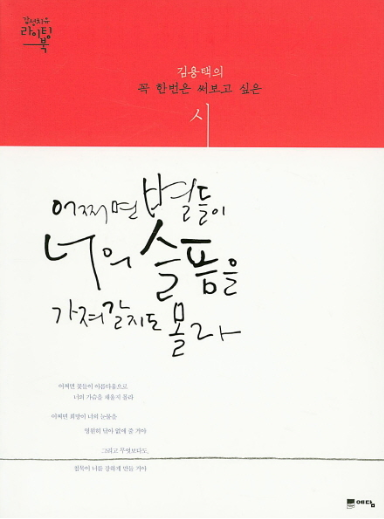 감성치유
라이팅
북
김용택의
꼭 한번은 써보고 싶은
시
어쩌면 별들이
너의 슬픔을
가져갈지도 몰라
어쩌면 꽃들이 아름다움으로
너의 가슴을 채울지 몰라
어쩌면 희망이 너의 눈물을
영원히 닦아 없애 줄 거야
그리고 무엇보다도,
침묵이 너를 강하게 만들 거야
예담